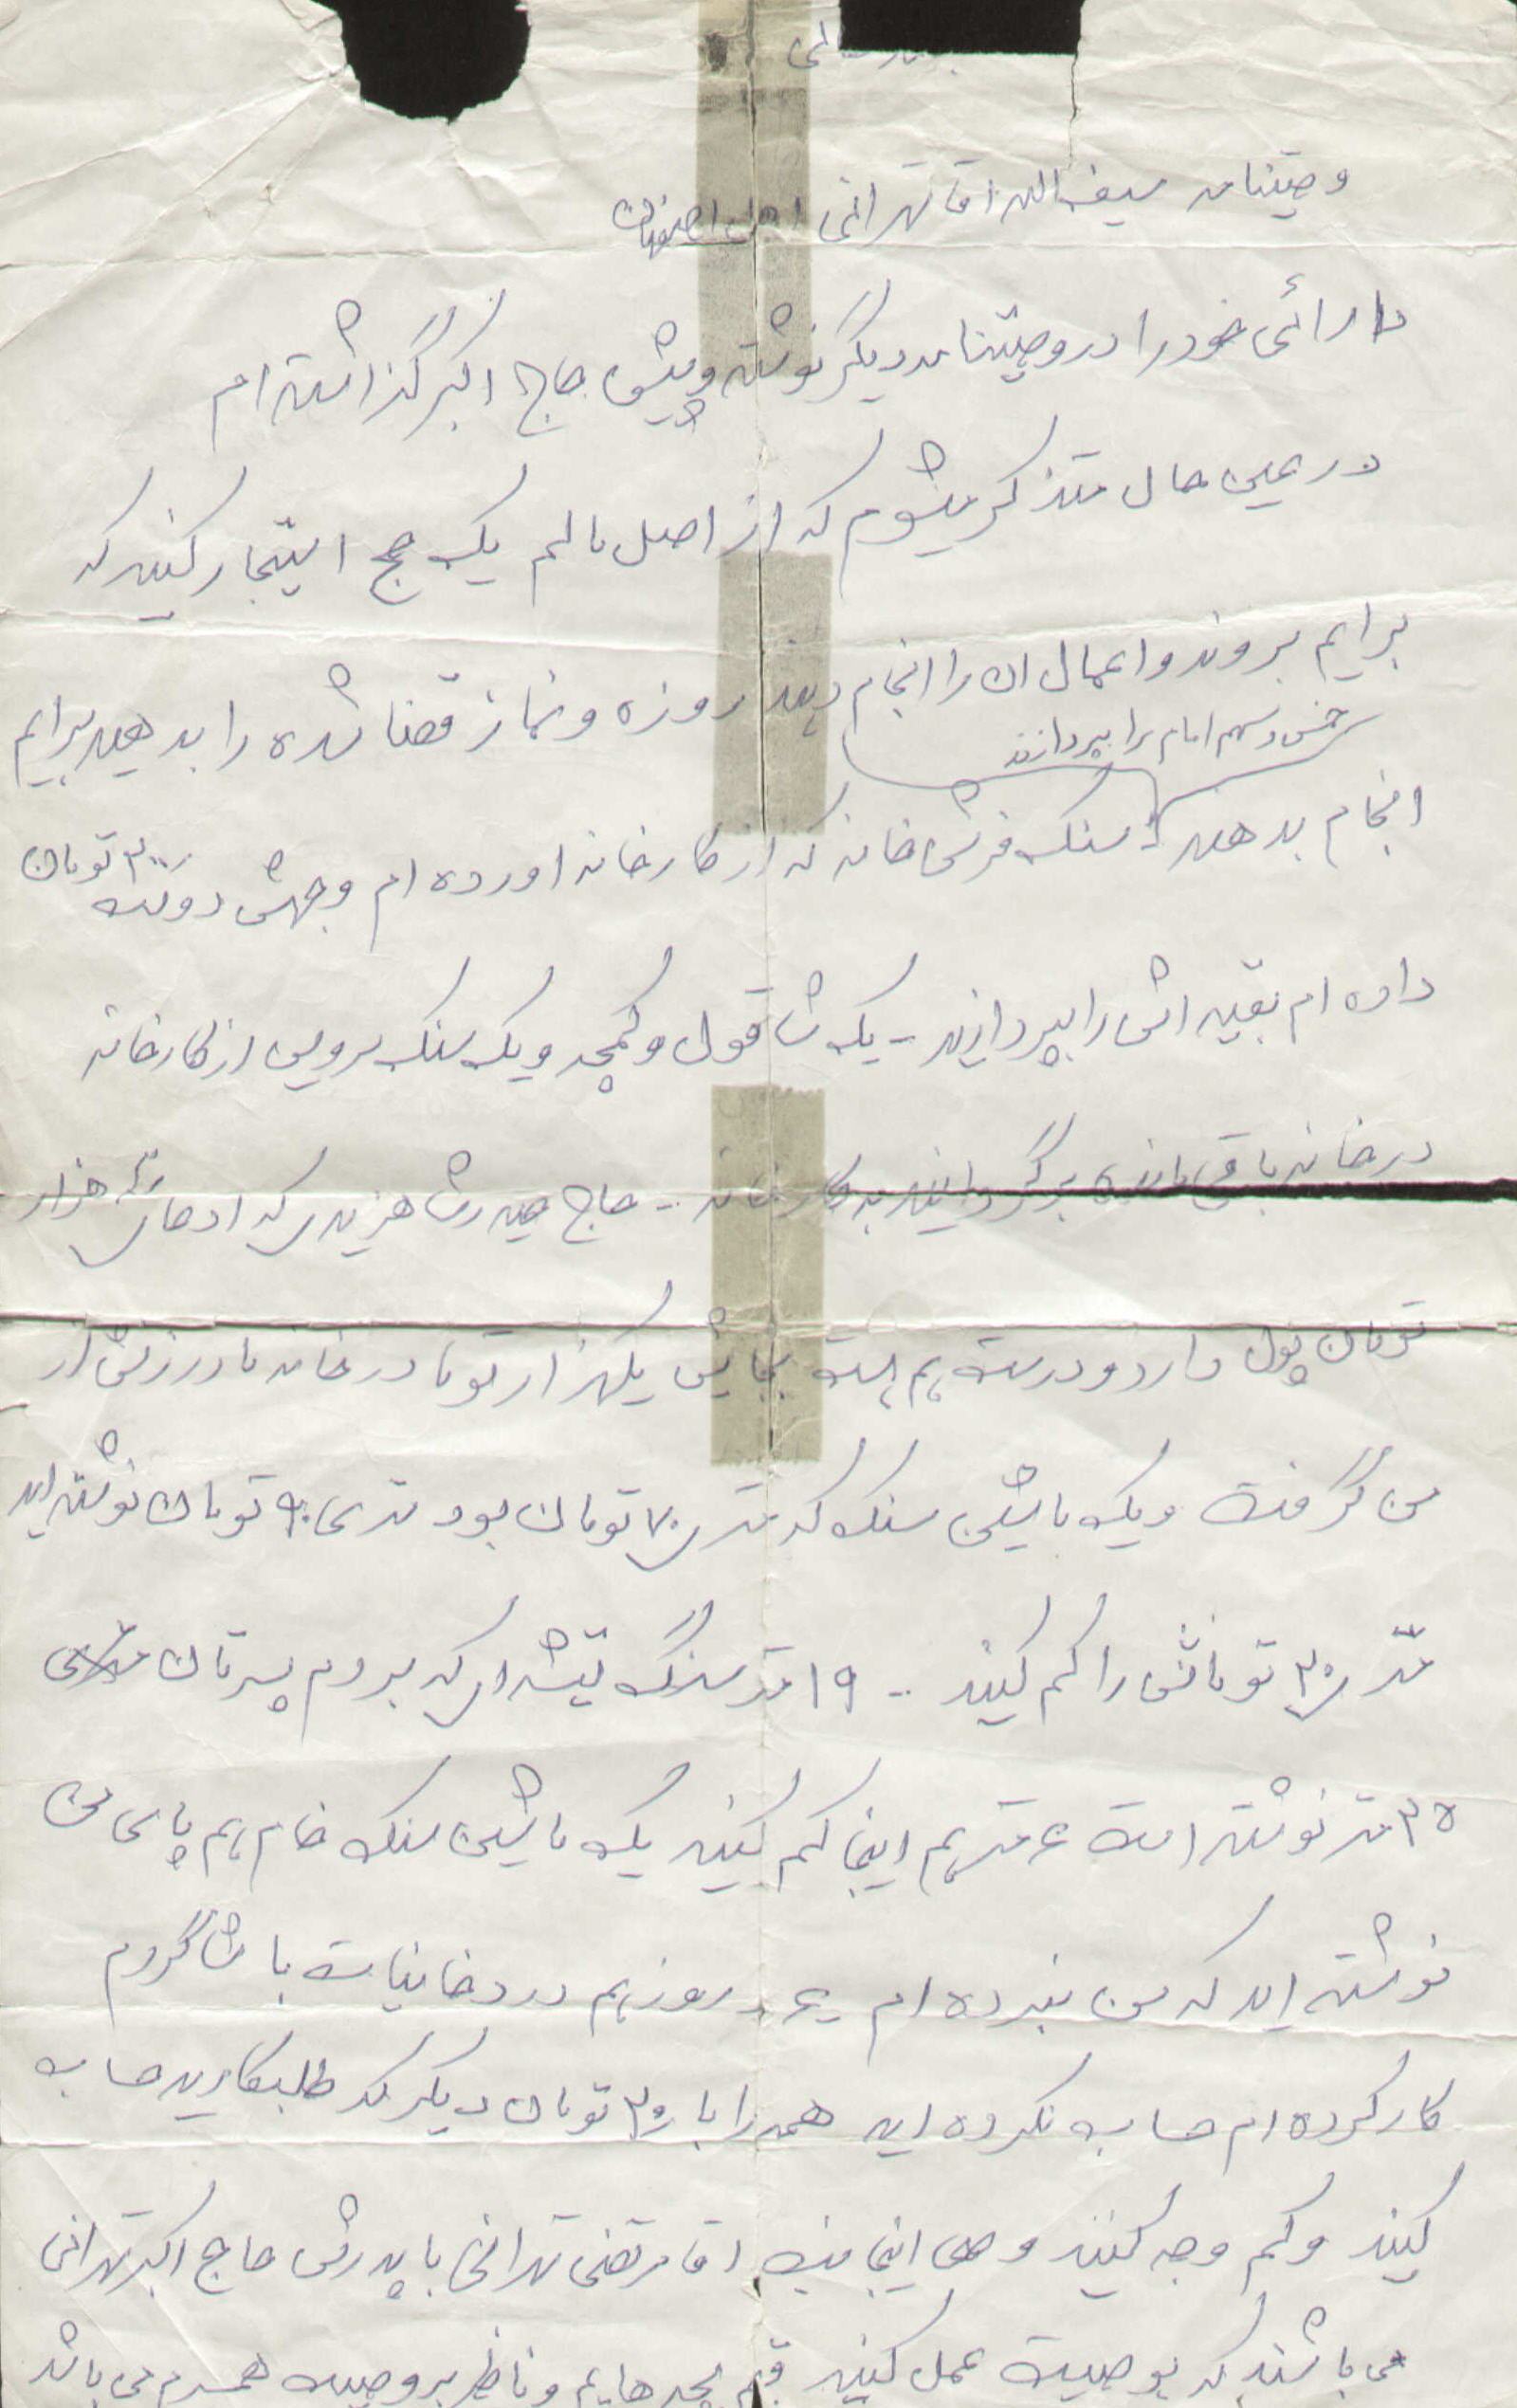 وصیتنامه سیف الله اقا تهرانی اهل اصفهان
دارائی خود را در وصیتنامه دیگر نوشته و پیش حاج اکبر گذاشته ام
در عین حال متذکر میشوم که از اصل مالم یک حج استیجار کنید که
برایم بروند و اعمال ان را انجام دهند روزه و نماز قضا شده را بدهید برایم
خمس و سهم امام را بپردازند
انجام بدهند سنگ فرش خانه که از کارخانه اورده ام وجهش دویست ۲۰۰ تومان
داده ام بقیه اش را بپردازید - یک شاقول و کمچه و یک سنگ برویی از کارخانه
در خانه باقی مانده برگردانید به کارخانه - حاج حیدر شاهزیدی که ادعای هزار
تومان پول دارد و درست هم هست بجایش یکهزار توما در خانه مادر زنش از
من گرفت و یک ماشین سنگ که متری ۷۰ تومان بود متری ۹۰ تومان نوشته اید
متری ۲۰ تومانش را کم کنید - ۱۹ متر سنگ تیشه ای که بردم پسرتان
۲۵ متر نوشته است ۶ متر هم اینجا کم کنید یک ماشین سنگ خام هم پای من
نوشته اید که من نبرده ام - روز هم در دخانیات با شاگردم
کار کرده ام حساب نکرده اید همه را با تومان دیگر که طلبکارید حساب
کنید و کم وجه کنید وصی اینجانب اقا مرتضی تهرانی با پدرش حاج اکبر تهرانی
می باشند که بوصیت عمل کنید قیم بچه هایم و ناظر بر وصیت همسرم می باشد